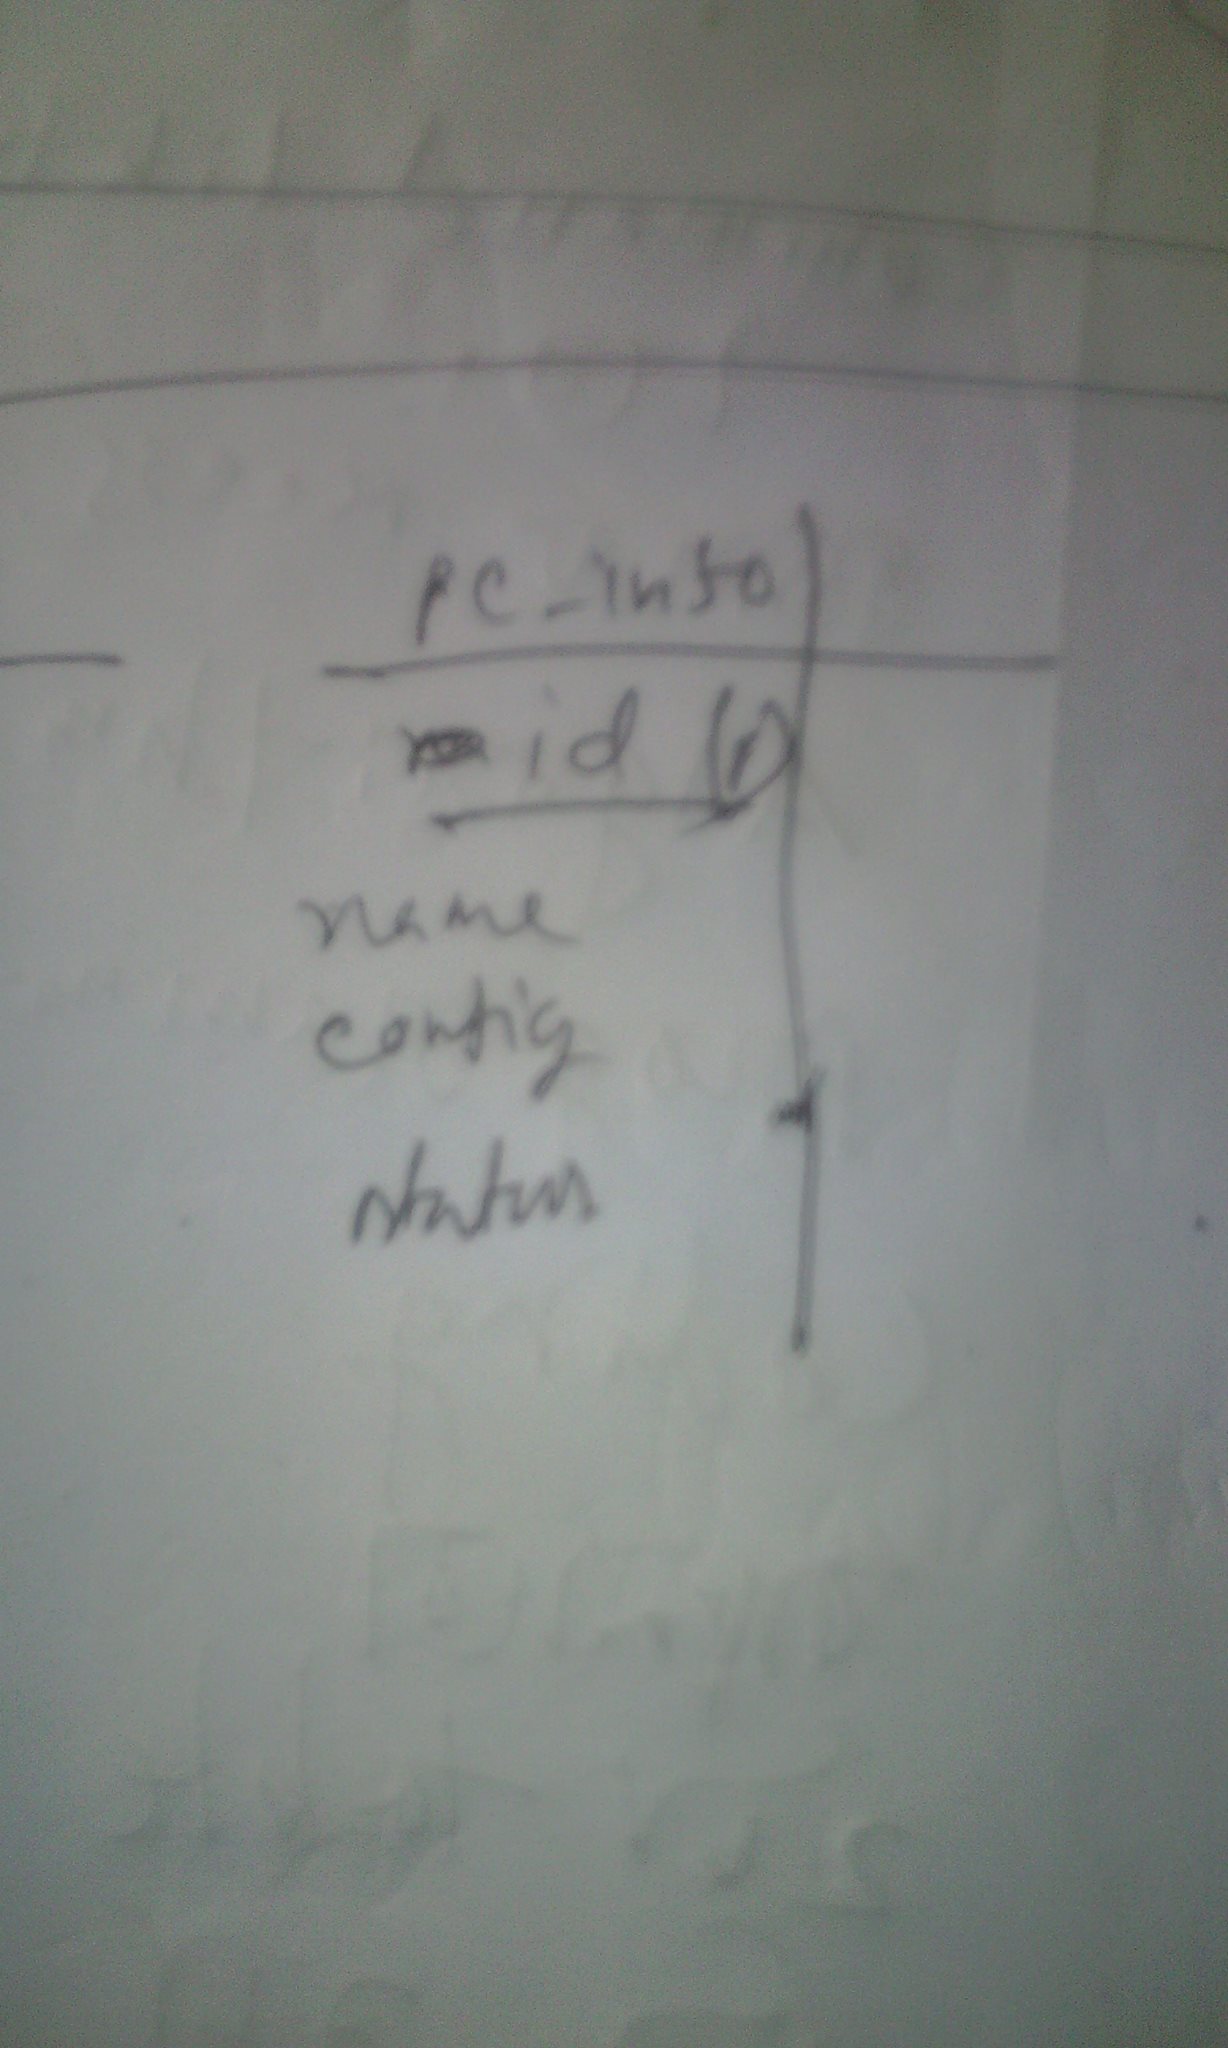 PC_info
id (P)
name
config
status